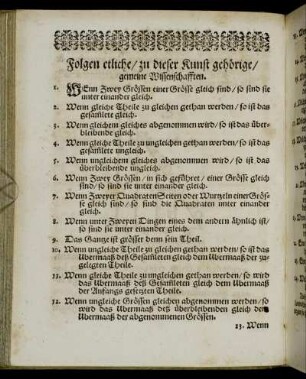 Folgen etliche/ zu dieser Kunst gehörige/
gemeine Wissenschafften.
1. WEnn Zwey Grössen einer Grösse gleich sind/ so sind sie
unter einander gleich.
2. Wenn gleiche Theile zu gleichen gethan werden/ so ist das
gesamlete gleich.
3. Wenn gleichem gleiches abgenommen wird/ so ist das über-
bleibende gleich.
4. Wenn gleiche Theile zu ungleichen gethan werden/ so ist das
gesamlete ungleich.
5. Wenn ungleichem gleiches abgenommen wird/ so ist das
überbleibende ungleich.
6. Wenn Zwey Grössen/ in sich geführet/ einer Grösse gleich
sind/ so sind sie unter einander gleich.
7. Wenn Zweyer Quadraten Seiten oder Wurtzeln einer Grös-
se gleich sind/ so sind die Quadraten unter einander
gleich.
8. Wenn unter Zweyen Dingen eines dem andern ähnlich ist/
so sind sie einander gleich.
9. Das Gantze ist grösser denn sein Theil.
10. Wenn ungleiche Theile zu gleichen gethan werden/ so ist das
Ubermaaß deß Gesamleten gleich dem Ubermaaß der zu-
gelegten Theile.
11. Wenn gleiche Theile zu ungleichen gethan werden/ so wird
das Ubermaaß deß Gesamleten gleich dem Ubermaaß
der Anfangs gesetzten Theile.
12. Wenn ungleiche Grössen gleichen abgenommen werden/ so
wird das Ubermaaß deß überbleibenden gleich dem
Ubermaaß der abgenommenen Grössen.
13. Wenn